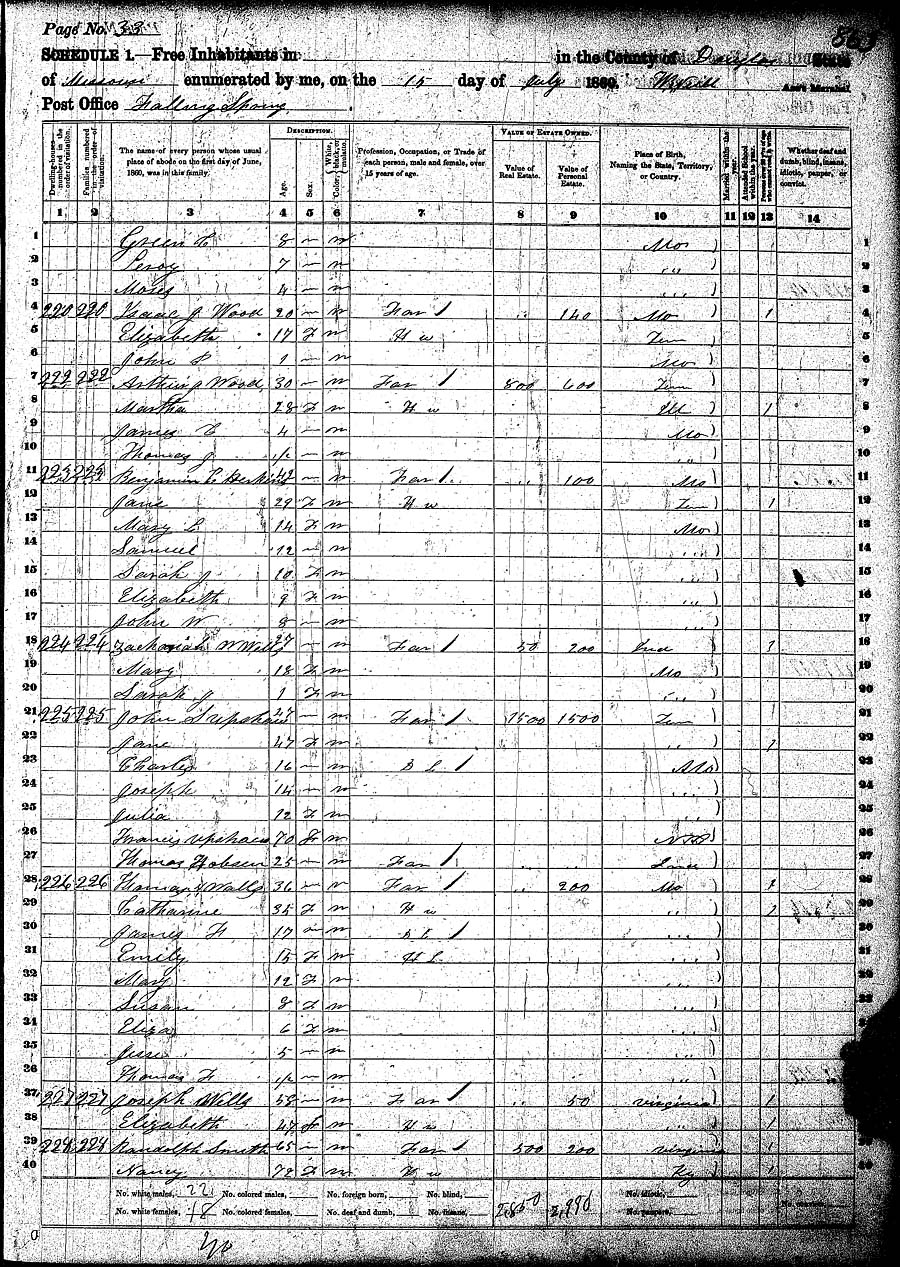 Page No. 33
SCHEDULE 1.—Free Inhabitants in in the County of Douglas State
of Missouri enumerated by me, on the 15 day of July 1860. Ass't Marshal
Post Office Falling Spring
Dwelling-houses numbered in the order of visitation.
Families numbered in the order of visitation.
The name of every person whose usual place of abode on the first day of June, 1860, was in this family.
DESCRIPTION.
Age.
Sex.
Color, White, black, or mulatto.
Profession, Occupation, or Trade of each person, male and female, over 15 years of age.
VALUE OF ESTATE OWNED.
Value of Real Estate.
Value of Personal Estate.
Place of Birth, Naming the State, Territory, or Country.
Married within the year.
Attended School within the year.
Whether deaf and dumb, blind, insane, idiotic, pauper, or convict.
1 2 3 4 5 6 7 8 9 10 11 12 13 14
1 Green C 8 — w Mo 1
2 Leroy 7 — w " 2
3 Moses 4 — w " 3
4 220 220 Isaac J Wood 20 — w Far 1 " 140 Mo 1 4
5 Elizabeth 17 F w H w Tenn 5
6 John P 1 — w Mo 6
7 222 222 Arthur J Wood 30 — w Far 1 800 600 Tenn 7
8 Martha 28 F w H w Ill 1 8
9 James C 4 — w Mo 9
10 Thomas J — w " 10
11 223 223 Benjamin C — w Far 1 " 100 Mo 11
12 Jane 29 F w H w Tenn 1 12
13 Mary E 14 F w Mo 13
14 Samuel 12 — w " 14
15 Sarah J 10 F w " 15
16 Elizabeth 9 F w " 16
17 John W 8 — w " 17
18 224 224 Zachariah W Wells 27 — w Far 1 50 200 Ind 1 18
19 Mary 18 F w Mo 19
20 Sarah J 1 F w " 20
21 225 225 John S Upshaw — w Far 1 1500 1500 Tenn 21
22 Jane 47 F w " 1 22
23 Charles 16 — w Mo 23
24 Joseph 14 — w " 24
25 Julia 12 F w " 25
26 Francis Upshaw 70 F w 26
27 Thomas Hobson 25 — w Far 1 27
28 226 226 Thomas J Walls 36 — w Far 1 " 200 Mo 1 28
29 Catharine 35 F w H w " 1 29
30 James F 17 — w 1 " 30
31 Emily 15 F w " 31
32 Mary 12 F w " 32
33 Susan 8 F w " 33
34 Eliza 6 F w "
35 Jesse 5 — w "
36 Thomas F — w "
37 227 227 Joseph Wells 58 — w Far 1 " 50 Virginia 1
38 Elizabeth 47 F w H w " 1
39 228 228 Randolph Smith 65 — w Far 1 500 200 Virginia 1
40 Nancy 72 F w H w Ky 1
No. white males, 22 No. colored males, No. foreign born, No. blind, No. idiotic,
No. white females, 18 No. colored females, No. deaf and dumb, No. insane, 2,850 2,990 No. paupers,
40